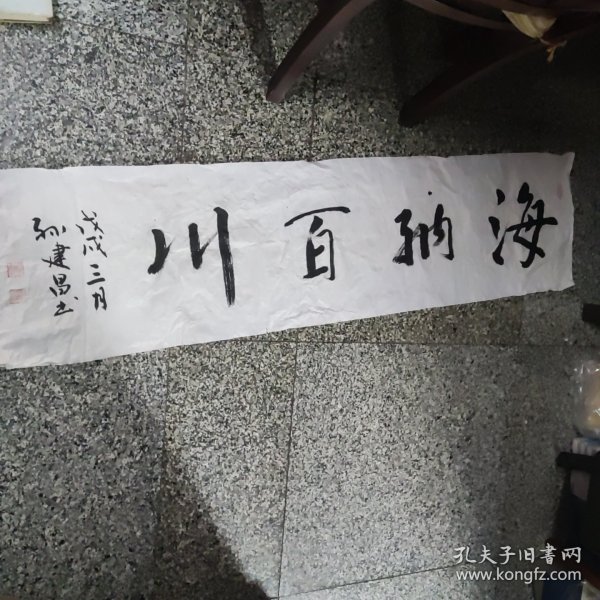 海纳百川
戊戌三月
孙建昌书
孔夫子旧书网
www.kongfz.com